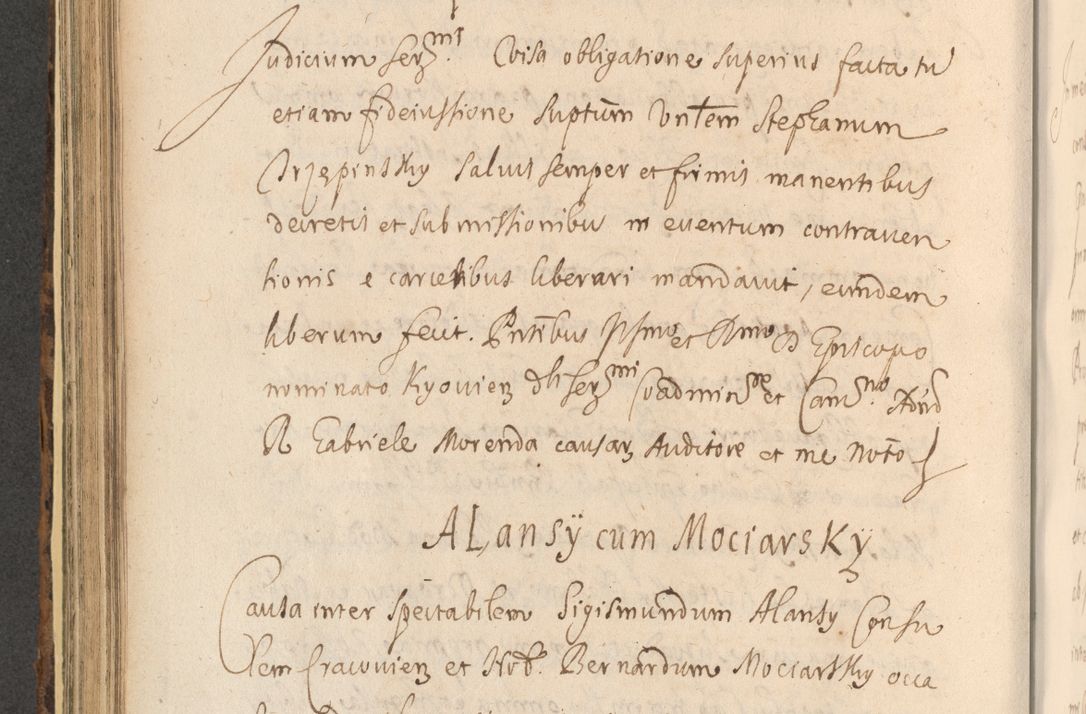 Judicium Ser[enissi]mi. Visa obligatione superius facta tu
etiam fideiussione suptum Vntem Stephanum
Drzepinsky salvis semper et firmis manentibus
decretis et submissionibus in euentum contrauen
tionis e carceribus liberari mandauit, eundem
liberum fecit. Pntibus Illmo et Rmo D Episcopo
nominato Kyouien Serm̃i Coadmin et Can Adm
R Gabriele Morenda causar Auditore et me Noto
ALansÿ cum MociarsKÿ
Causa inter spectabilem Sigismundum Alansy Consu
lem Cracouien et Nob. Bernardum Mociarsky occa